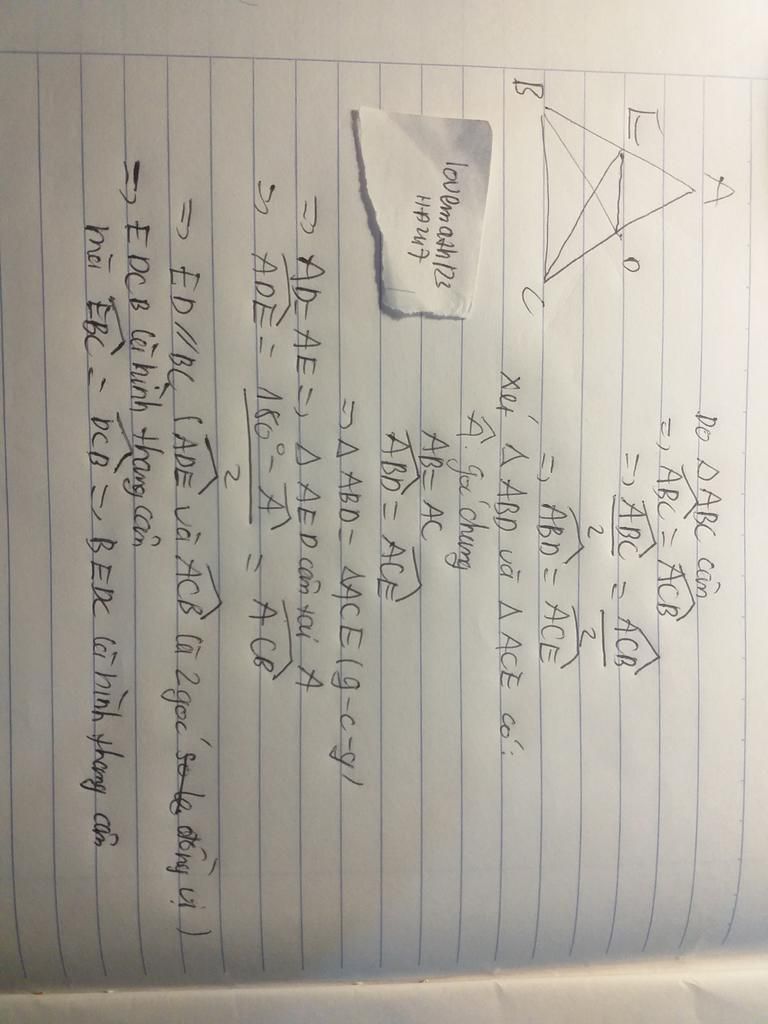 A
E
D
B
C
lovemath123
H+D247
Do △ABC cân
=> ABC = ACB
=> ABC/2 = ACB/2
=> ABD = ACE
Xét △ABD và △ACE có:
A góc chung
AB = AC
ABD = ACE
=> △ABD = △ACE (g-c-g)
=> AD = AE => △AED cân tại A
=> ADE = 180° - A / 2 = ACB
=> ED // BC (ADE và ACB là 2 góc so le đồng vị)
=> EDCB là hình thang cân
mà EBC = DCB => BEDC là hình thang cân